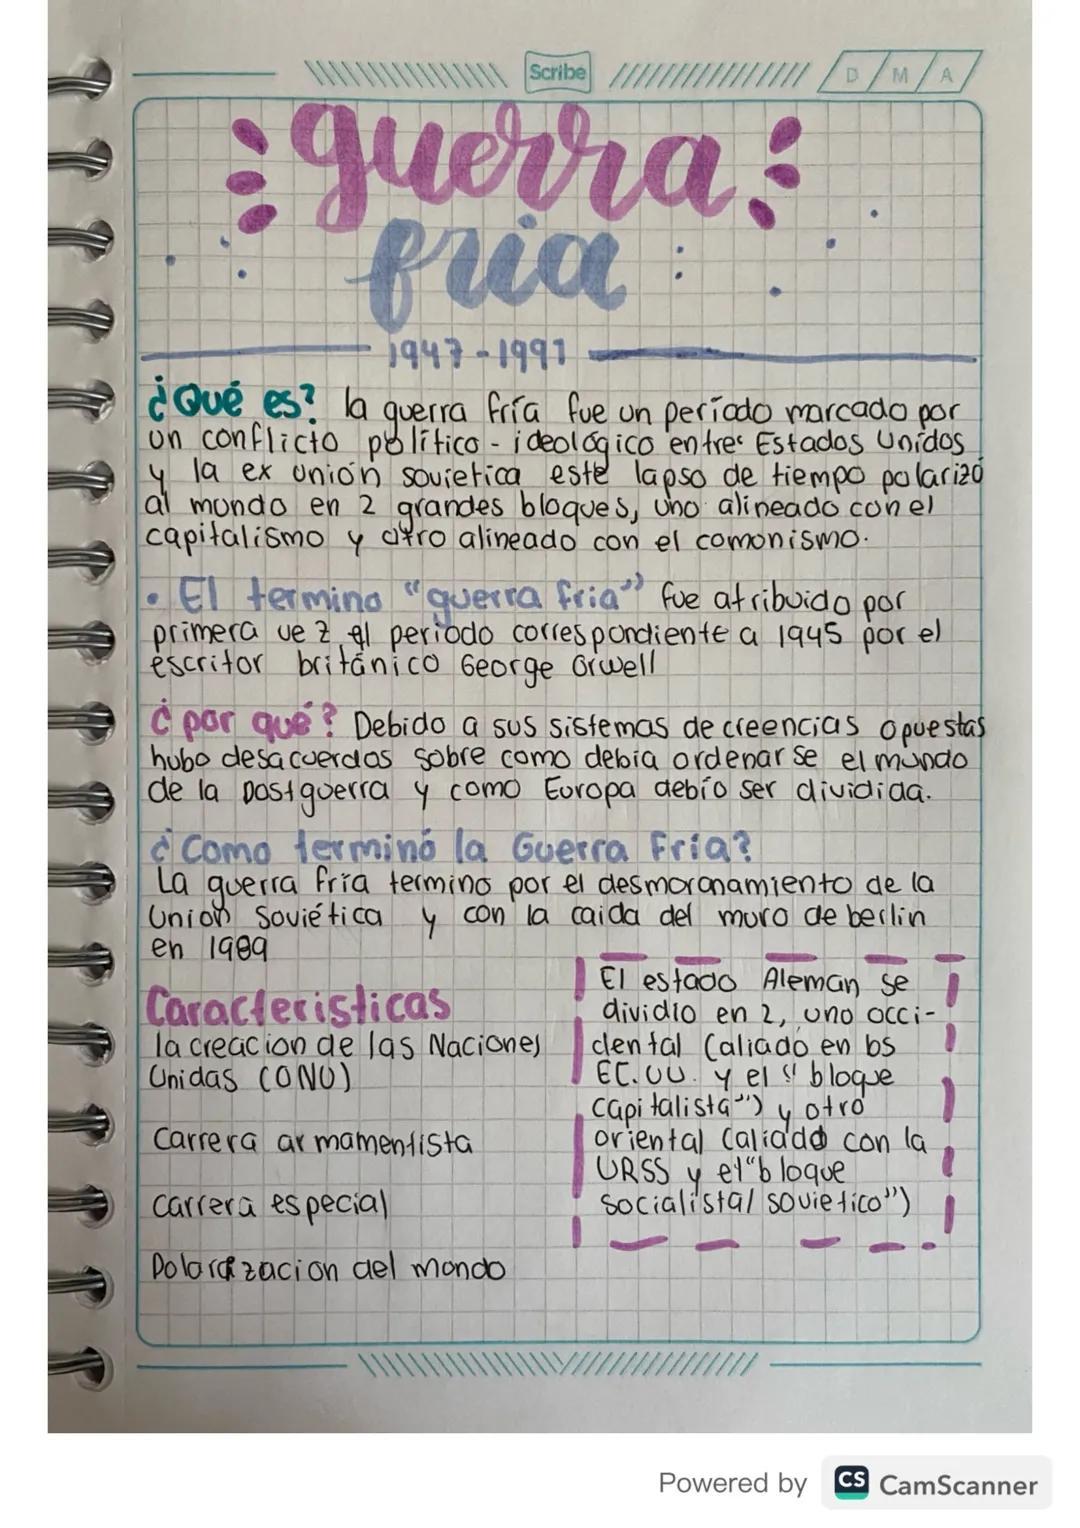 Scribe
D / M / A
guerra
fria
1947-1991
¿Qué es? la guerra fría fue un período marcado por
un conflicto político - ideológico entre Estados Unidos
y la ex unión sovietica este lapso de tiempo polarizó
al mundo en 2 grandes bloques, uno alineado con el
capitalismo y otro alineado con el comonismo.
• El termino "guerra fria" fue atribuido por
primera vez al período correspondiente a 1945 por el
escritor británico George Orwell
¿por qué? Debido a sus sistemas de creencias opuestas
hubo desacuerdos sobre como debia ordenarse el mundo
de la postguerra y como Europa debío ser dividida.
¿Como terminó la Guerra Fría?
La guerra fría termino por el desmoronamiento de la
Unión Soviética y con la caida del muro de berlin
en 1989
Caracteristicas
la creacion de las Naciones
Unidas (ONU)
Carrera armamentista
Carrera especial
Polarizacion del mondo
El estado Alemán se
dividio en 2, uno occi-
dental (aliado en los
EC.UU. y el "bloque
capitalista") y otro
oriental (aliado con la
URSS y el "bloque
socialista/ sovietico")
Powered by CS CamScanner